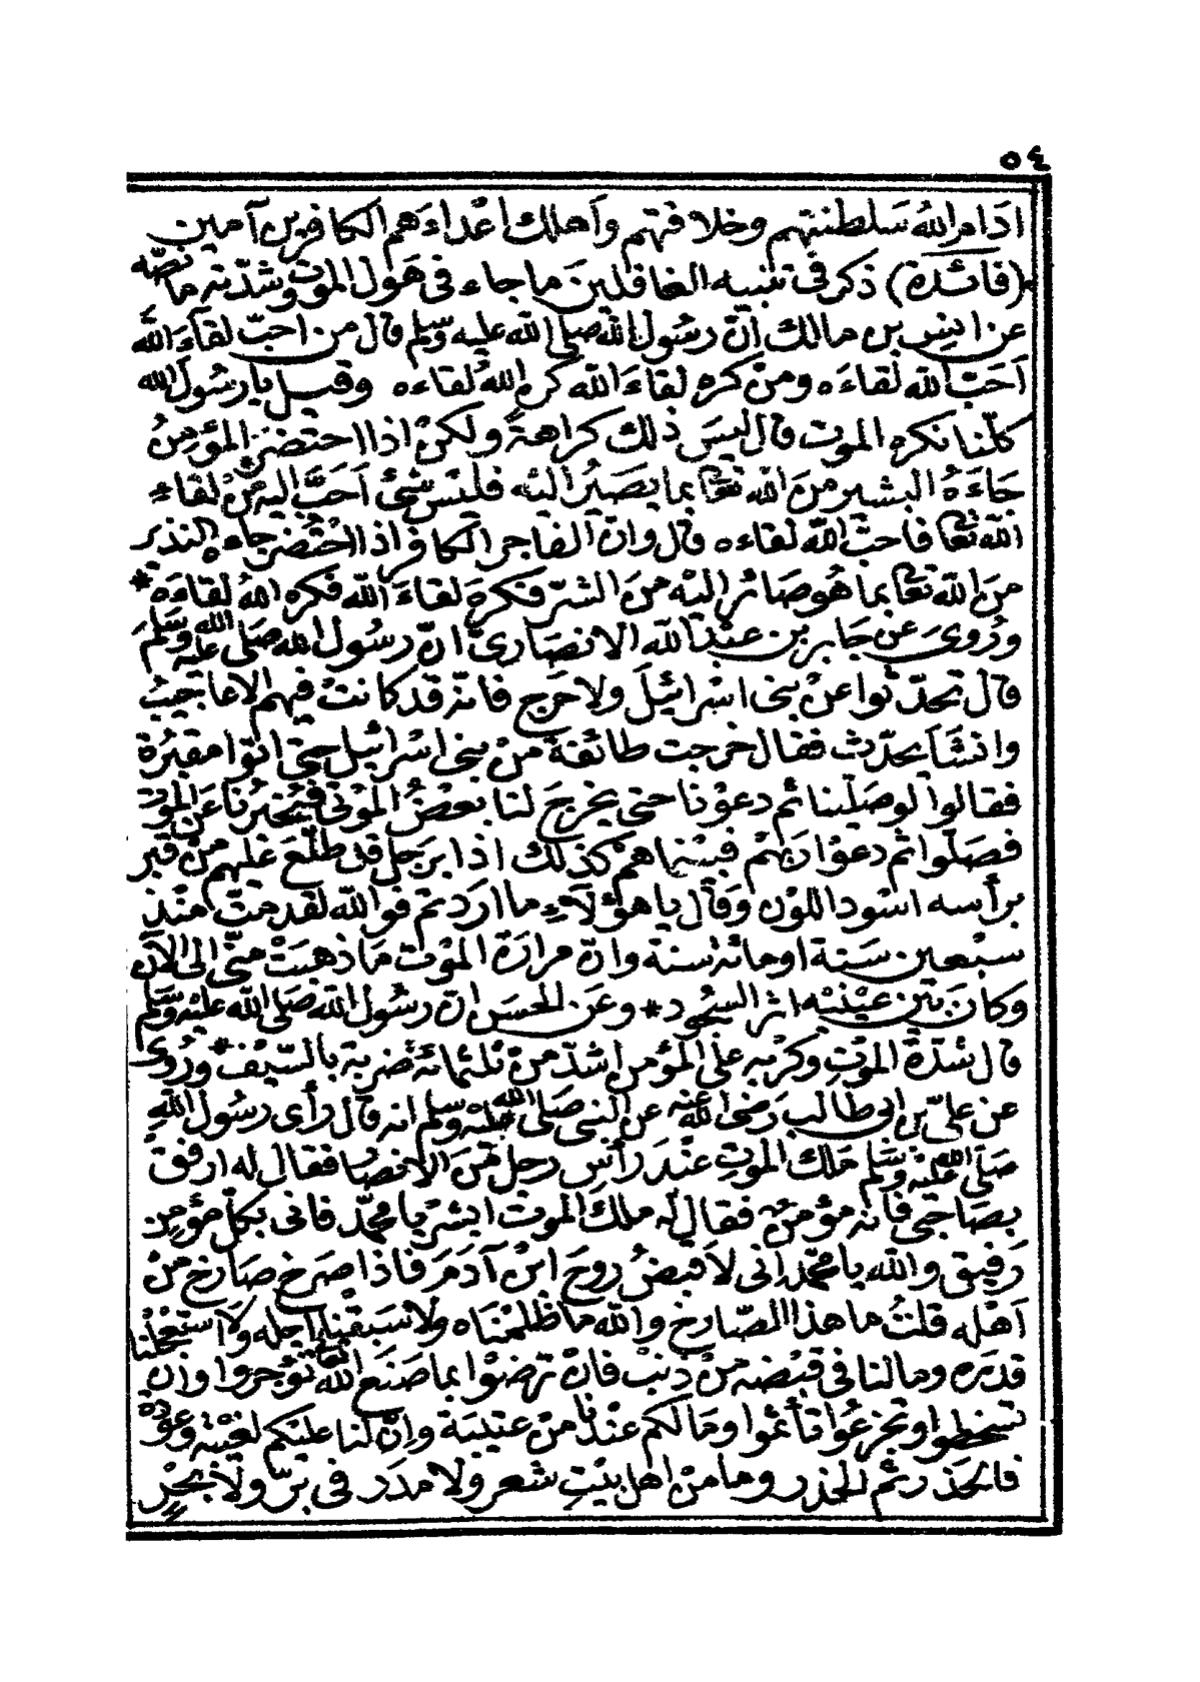 ٥٤
ادَام اللهُ سَلطنتهم وخلافتهم وأهلك أعْداءَهم الكافرين آمين
(فائدة) ذكر فى تنبيه الغافلينَ ما جاء فى هَول الموت وشدّته ما نصّه
عن انس بن مالك انّ رسُول الله صلى الله عليه وسلم قال من احبّ لقاءَ الله
أحَبّ الله لقاءَه ومنْ كره لقاءَ الله كره اللهُ لقاءه وقيل يا رسُولَ الله
كلّنا نكره الموت قال ليسَ ذلك كراهةً ولكنْ اذا احتضرَ المؤمنُ
جَاءَهُ البشير منَ الله تعالى بما يصَيرُ اليْه فليْسَ شئ أحَبَّ اليه منْ لقاءِ
الله تعالى فاحبّ اللهُ لقاءه قال وانّ الفاجر الكافر اذا احْتُضرَ جاءه النذير
منَ الله تعالى بما هُو صَائر اليْه منَ الشرّ فكرهَ لقاءَ الله فكره اللهُ لقاءَه *
ورُوىَ عن جَابر بن عبْد الله الانصَارىّ انّ رسُول الله صَلى الله عليْه وسَلمَ
قال تحدّثوا عنْ بنى اسْرائيلَ ولا حَرج فانه قد كانتْ فيهم الاعاجيبُ
وانشَأ يحدّث فقال خرجت طائفةٌ منْ بنى اسْرائيل حتى اتوا مقبرُة
فقالوا لو صَليْنا ثم دعوْنا حتى يخرجَ لنا بعْضُ الموْتى فيُخبرُنا عَن الموْت
فصَلوا ثم دعوْا ربّهُمْ فبيْنما همْ كذلك اذا برَجل قد طلّعَ عليهم منْ قبر
برأسه اسْود اللوْن وَقال يا هؤلاءِ ما اردتمْ فوالله لقد متّ منْذ
سبْعين سَنة اومائة سنة وانّ مرارَة الموْت مَا ذهبَتْ منّى الى الآن
وكانَ بَيْن عيْنيْه اثر السجُود * وعَن الحسَن انّ رسُول الله صَلى الله عليْه وسَلم
قال شدّة الموْتِ وكرْبه على المؤمن اشدّ منْ ثلثمائة ضرْبة بالسّيْف * ورُوى
عن علىّ بن ابى طالب رَضى الله عنه عن النبى صَلى الله عليْه وسلم انه قال رأى رسُول الله
صَلى الله عليْه وسَلم مَلك الموتِ عنْدَ رأسِ رجل منَ الانصَار فقال له ارفقْ
بصَاحبى فانه مؤمنٌ فقال له ملك الموت ابشرْ يا محمّد فانى بكلّ مؤمِن
رَفيق والله يا محمّد انى لأقبضُ روحَ ابْن آدَمَ فاذا صرَخ صَارخ منْ
أهْله قلتُ ما هذا الصّارخ والله ما ظلمْناه ولا سَبقنا اجله ولا اسْتعْجلْنا
قدَره وما لنا فى قبْضه منْ ذنْب فانْ ترْضوْا بما صَنعَ اللهُ تعالى تؤجروا وان
تسْخطوا وتجْزعُوا تأثموا ومَا لكم عنْدنا منْ عتيبَة وانّ لنا عليْكم لبغيْة وعوْدة
فالحَذرَ ثم الحذر وما منْ اهل بيْتِ شعر ولا مدَر فى برّ ولا بحْرٍ